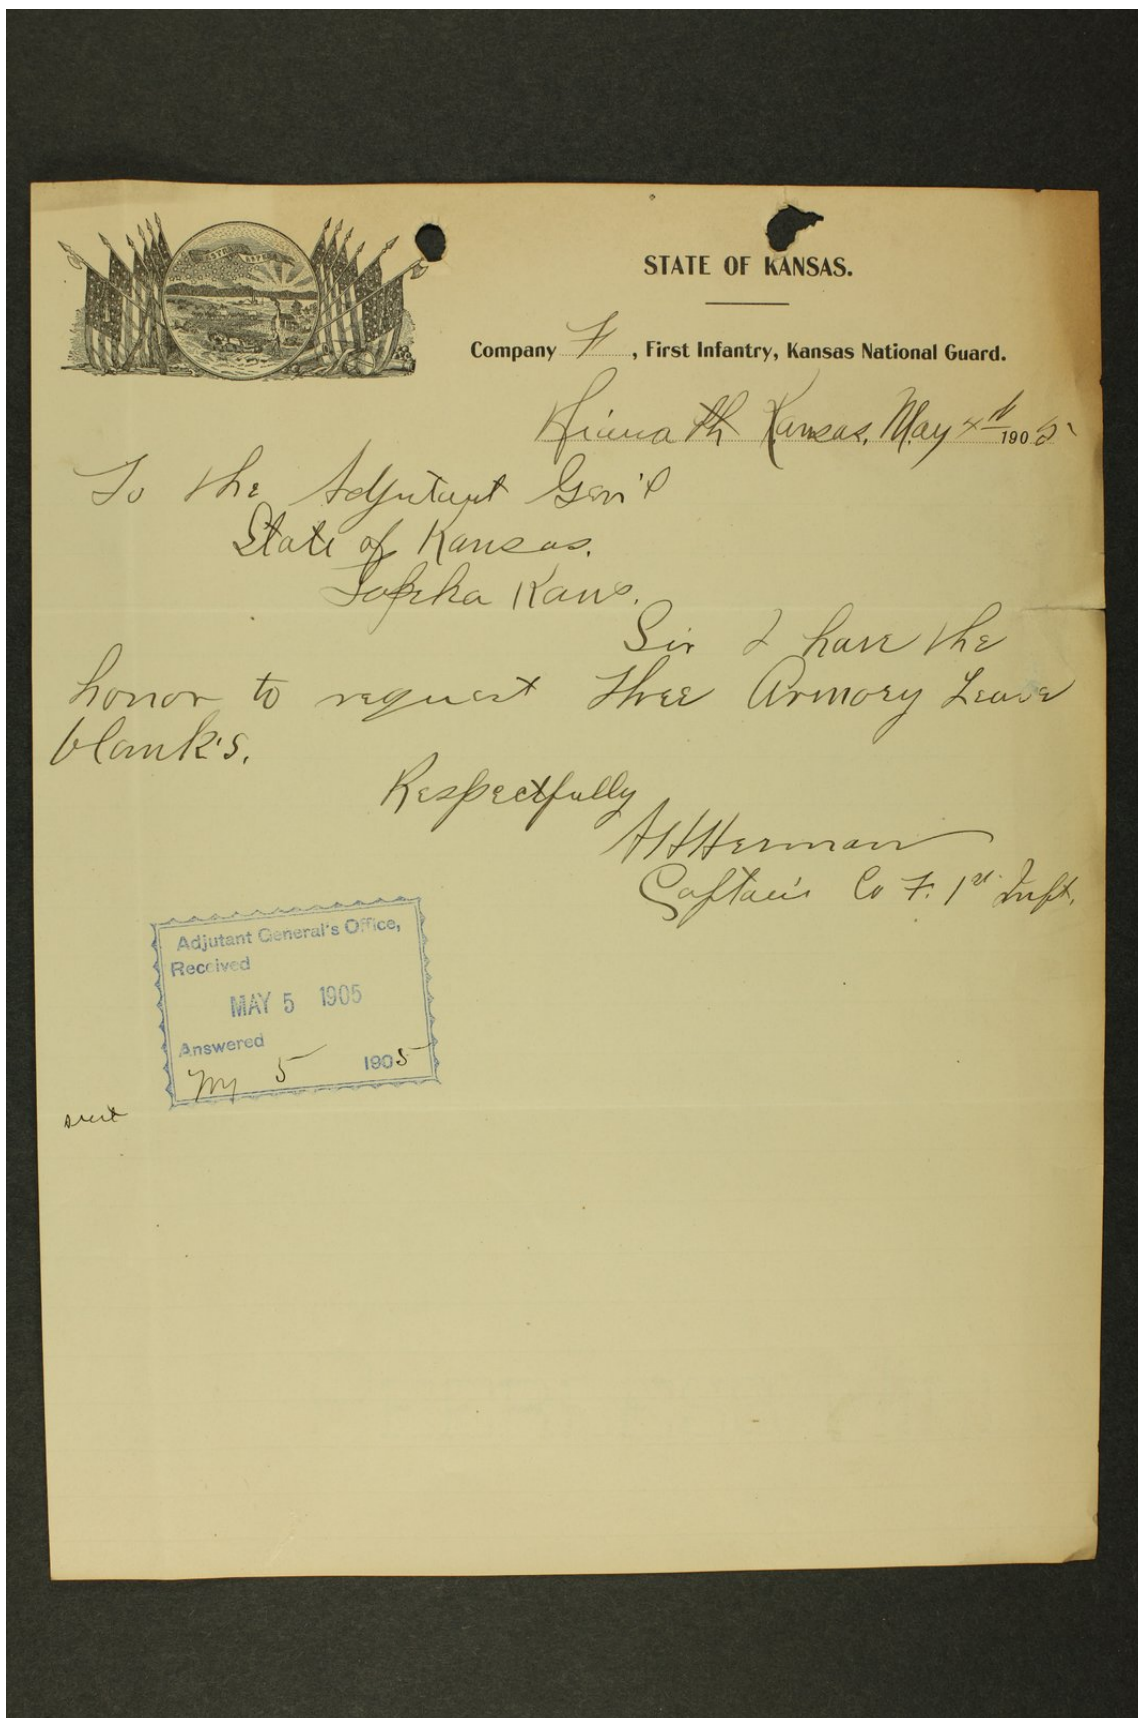 STATE OF KANSAS.
Company F, First Infantry, Kansas National Guard.
Hiawatha Kansas, May 4th 1905
To the Adjutant Gen'l
State of Kansas.
Topeka Kans.
Sir I have the
honor to request three Armory Lease
blank's.
Respectfully
AHHerman
Captain Co F. 1st Inft.
Adjutant General's Office,
Received
MAY 5 1905
Answered
My 5 1905
sent